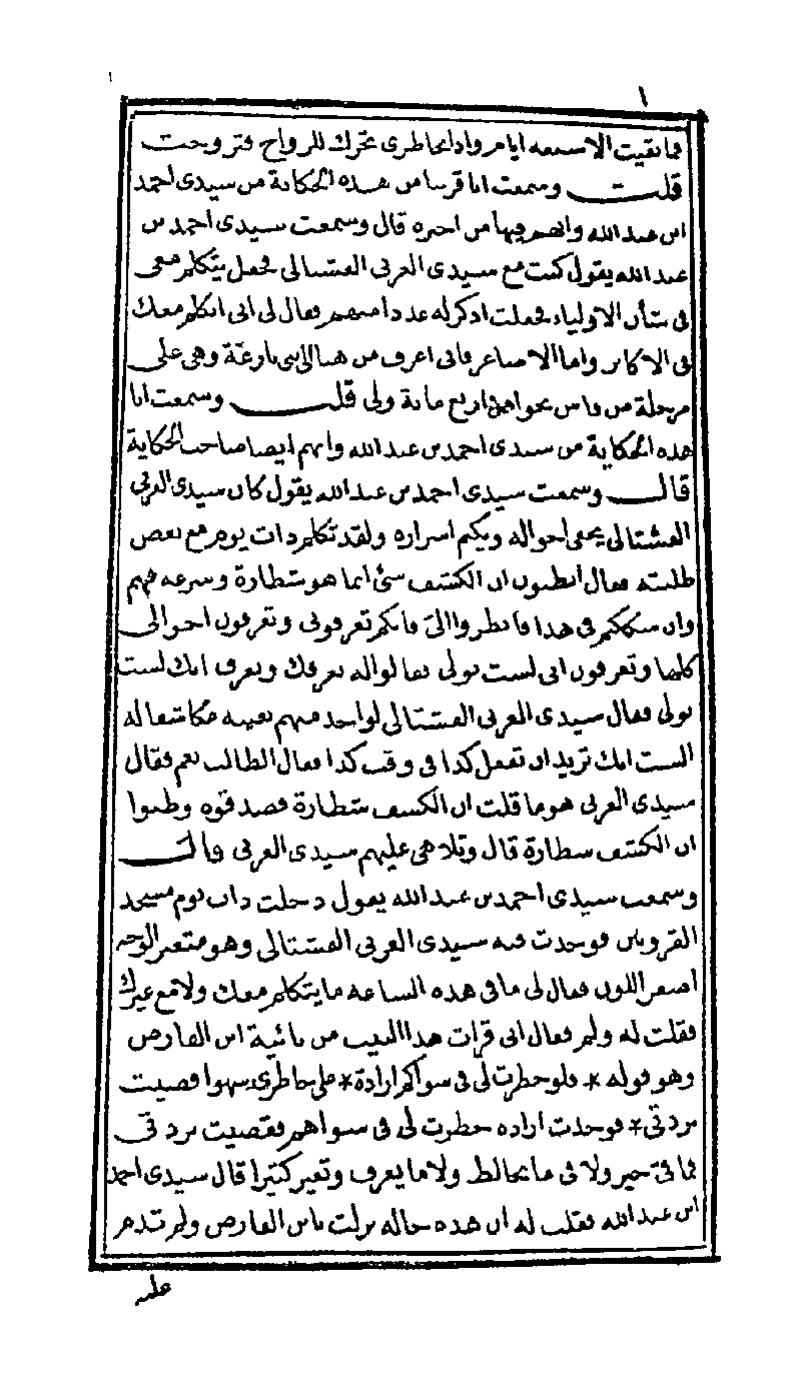 ١
فما بقيت الا سبعه ايام واذا بخاطرى تحرك للرواح فتروحت
قلت وسمعت انا قريبا من هذه الحكاية من سيدى احمد
ابن عبد الله وابهم فيها من اخبره قال وسمعت سيدى احمد بن
عبد الله يقول كنت مع سيدى العربى الفشتالى فجعل يتكلم معى
فى شأن الاولياء فجعلت اذكر له عددا منهم فقال لى انى اتكلم معك
فى الاكابر واما الاصاغر فانى اعرف من هنا الى تارغة وهى على
مرحلة من فاس نحوا من اربع ماية ولى قلت وسمعت انا
هذه الحكاية من سيدى احمد بن عبد الله وابهم ايضا صاحب الحكاية
قال وسمعت سيدى احمد بن عبد الله يقول كان سيدى العربى
الفشتالى يخفى احواله ويكتم اسراره ولقد تكلم ذات يوم مع بعض
طلبته فقال اتظنون ان الكشف شئ انما هو شطارة وسرعه فهم
وان شككتم فى هذا فانظروا الىّ فانكم تعرفونى وتعرفون احوالى
كلها وتعرفون انى لست بولى فقالوا له نعرفك ونعرف انك لست
بولى فقال سيدى العربى الفشتالى لواحد منهم بعينه مكاشفا له
الست انك تريد ان تفعل كذا فى وقت كذا فقال الطالب نعم فقال
سيدى العربى هو ما قلت ان الكشف شطارة فصدقوه وظنوا
ان الكشف شطارة قال وتلاهى عليهم سيدى العربى قال
وسمعت سيدى احمد بن عبد الله يقول دخلت ذات يوم مسجد
القرويين فوجدت فيه سيدى العربى الفشتالى وهو متغير الوجه
اصفر اللون فقال لى ما فى هذه الساعه ما يتكلم معك ولا مع غيرك
فقلت له ولم فقال انى قرات هذا البيت من تائية ابن الفارض
وهو قوله * فلو خطرت لى فى سواكم ارادة * على خاطرى سهوا قضيت
بردتى * فوجدت اراده خطرت لى فى سواهم فقضيت بردتى
فما فىّ خير ولا فىّ ما يخالط ولا ما يعرف وتغير كثيرا قال سيدى احمد
ابن عبد الله فقلت له ان هذه حاله نزلت بابن الفارض ولم تدم
عليه